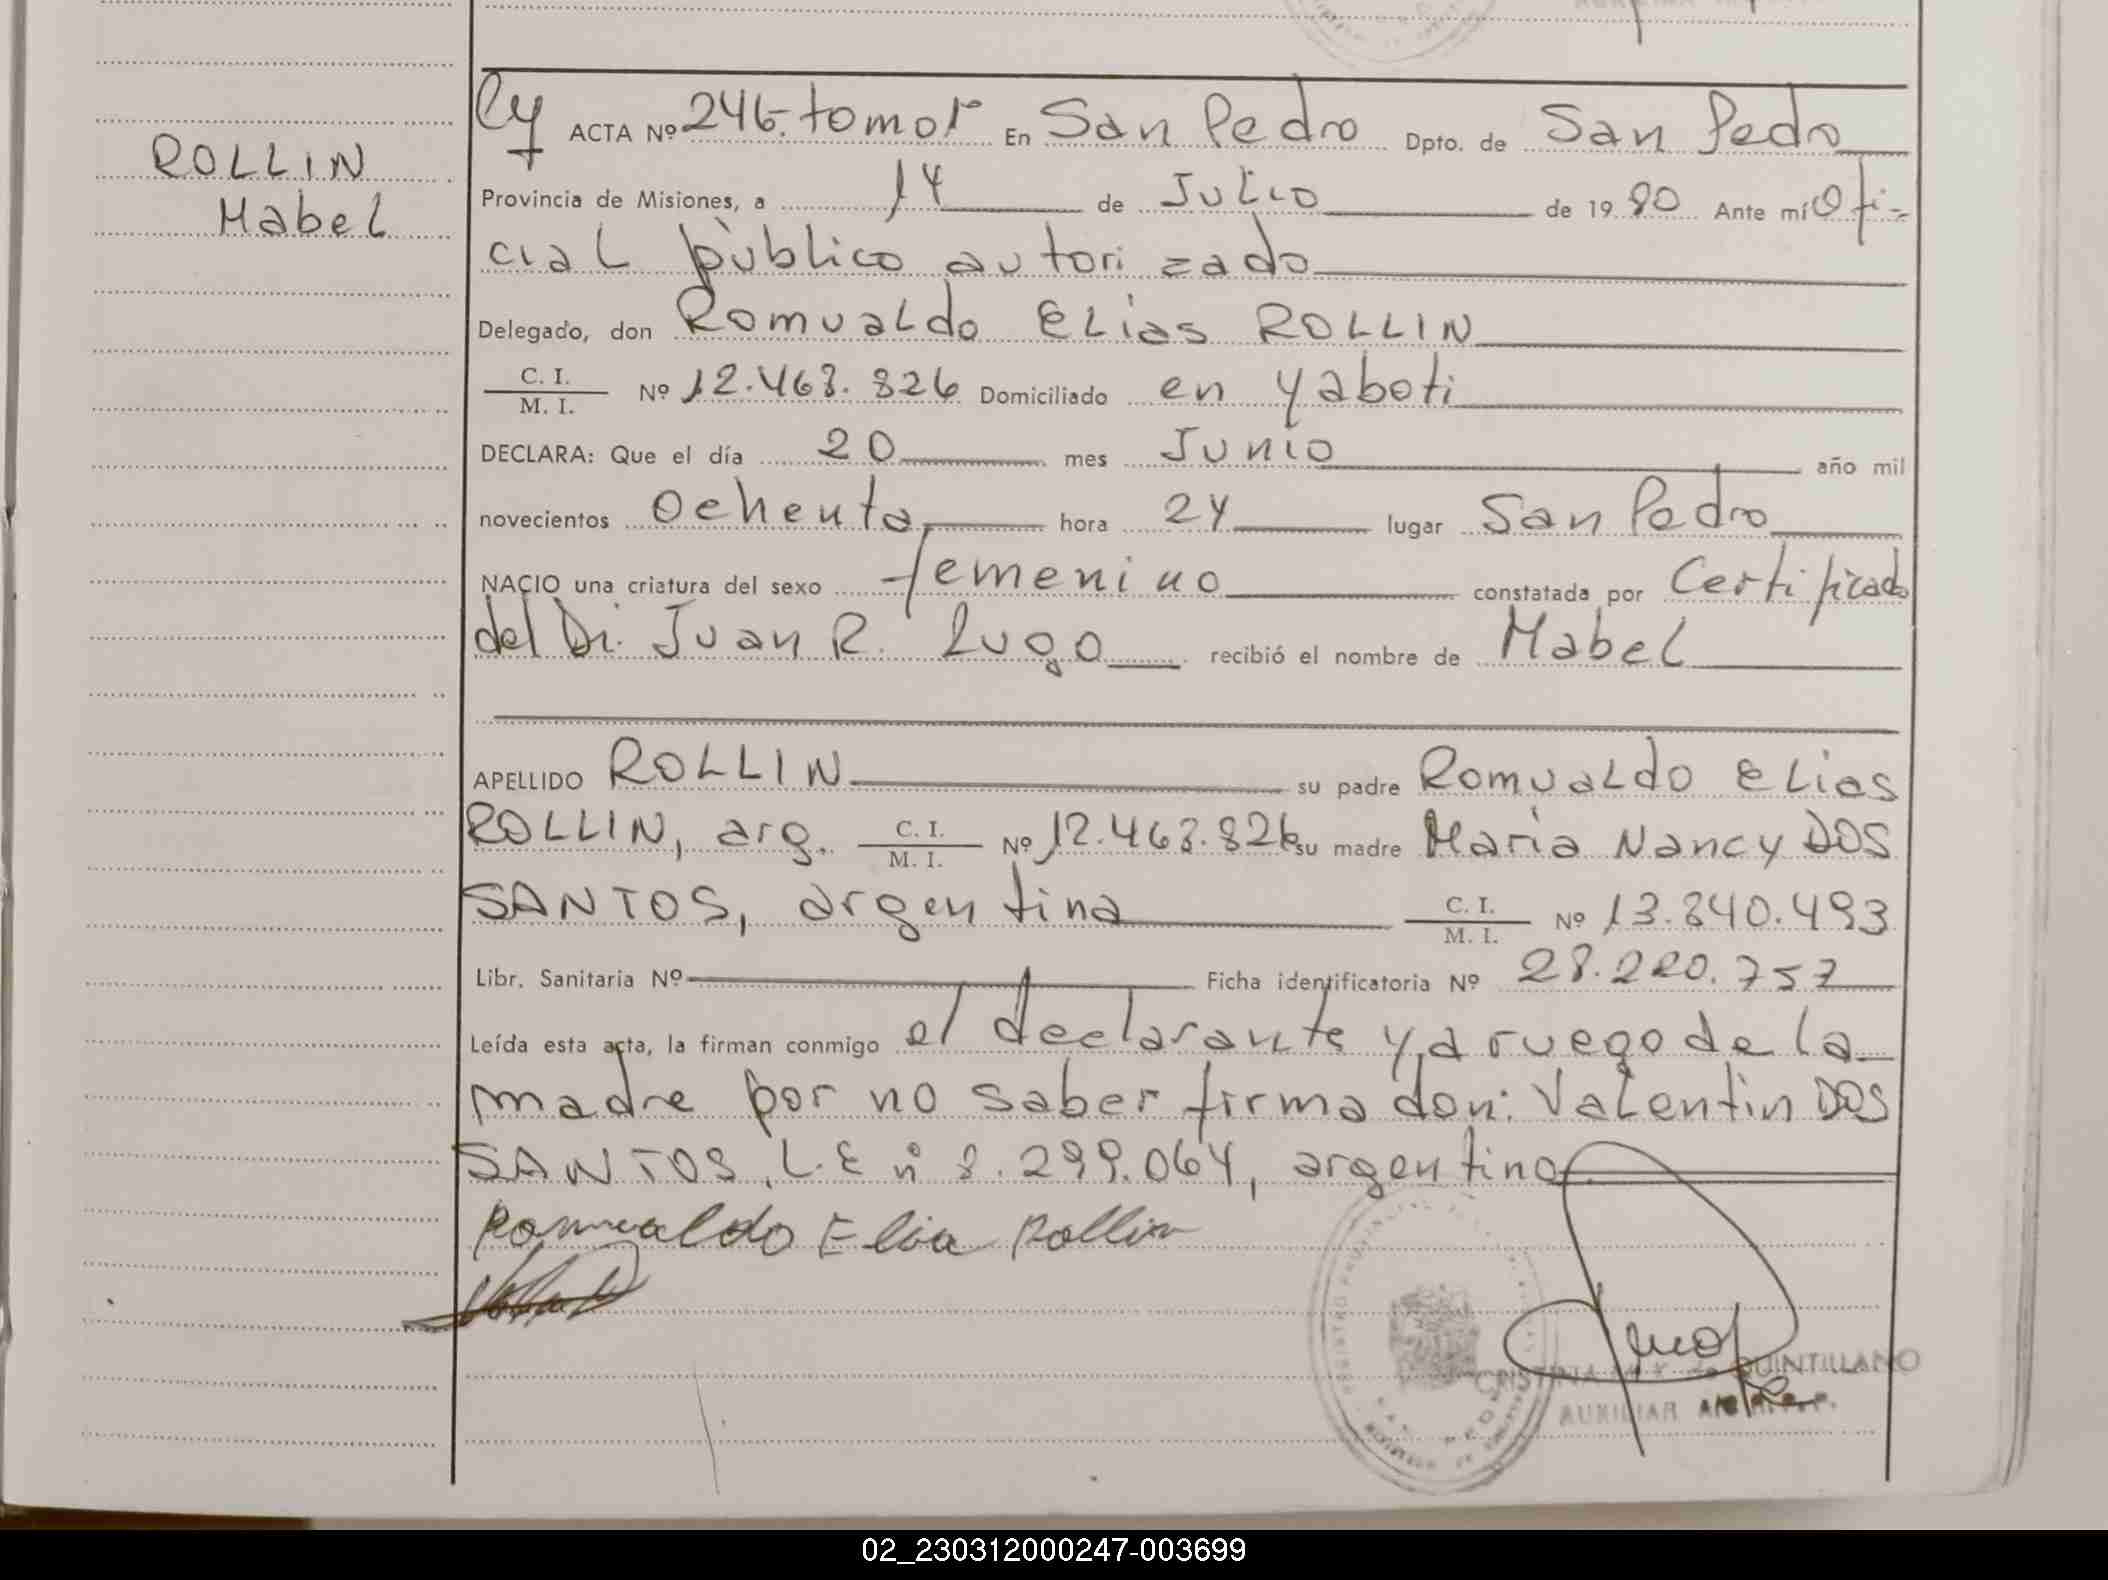 ROLLIN
Mabel
ACTA Nº 246 tomo 1º En San Pedro Dpto. de San Pedro
Provincia de Misiones, a 14 de Julio de 1980 Ante mí Ofi-
cial público autorizado
Delegado, don Romualdo Elias ROLLIN
C. I.
M. I. Nº 12.463.826 Domiciliado en Yaboti
DECLARA: Que el día 20 mes Junio año mil
novecientos ochenta hora 24 lugar San Pedro
NACIO una criatura del sexo femenino constatada por Certificado
del Dr. Juan R. Lugo recibió el nombre de Mabel
APELLIDO ROLLIN su padre Romualdo Elias
ROLLIN, arg. C. I. M. I. Nº 12.463.826 su madre Maria Nancy DOS
SANTOS, argentina C. I. M. I. Nº 13.840.493
Libr. Sanitaria Nº Ficha identificatoria Nº 28.220.757
Leída esta acta, la firman conmigo el declarante y a ruego de la
madre por no saber firma don: Valentin DOS
SANTOS, L.E nº 8.299.064, argentino
Romualdo Elia Rollin
CRISTINA de QUINTILLANO
AUXILIAR
02_230312000247-003699